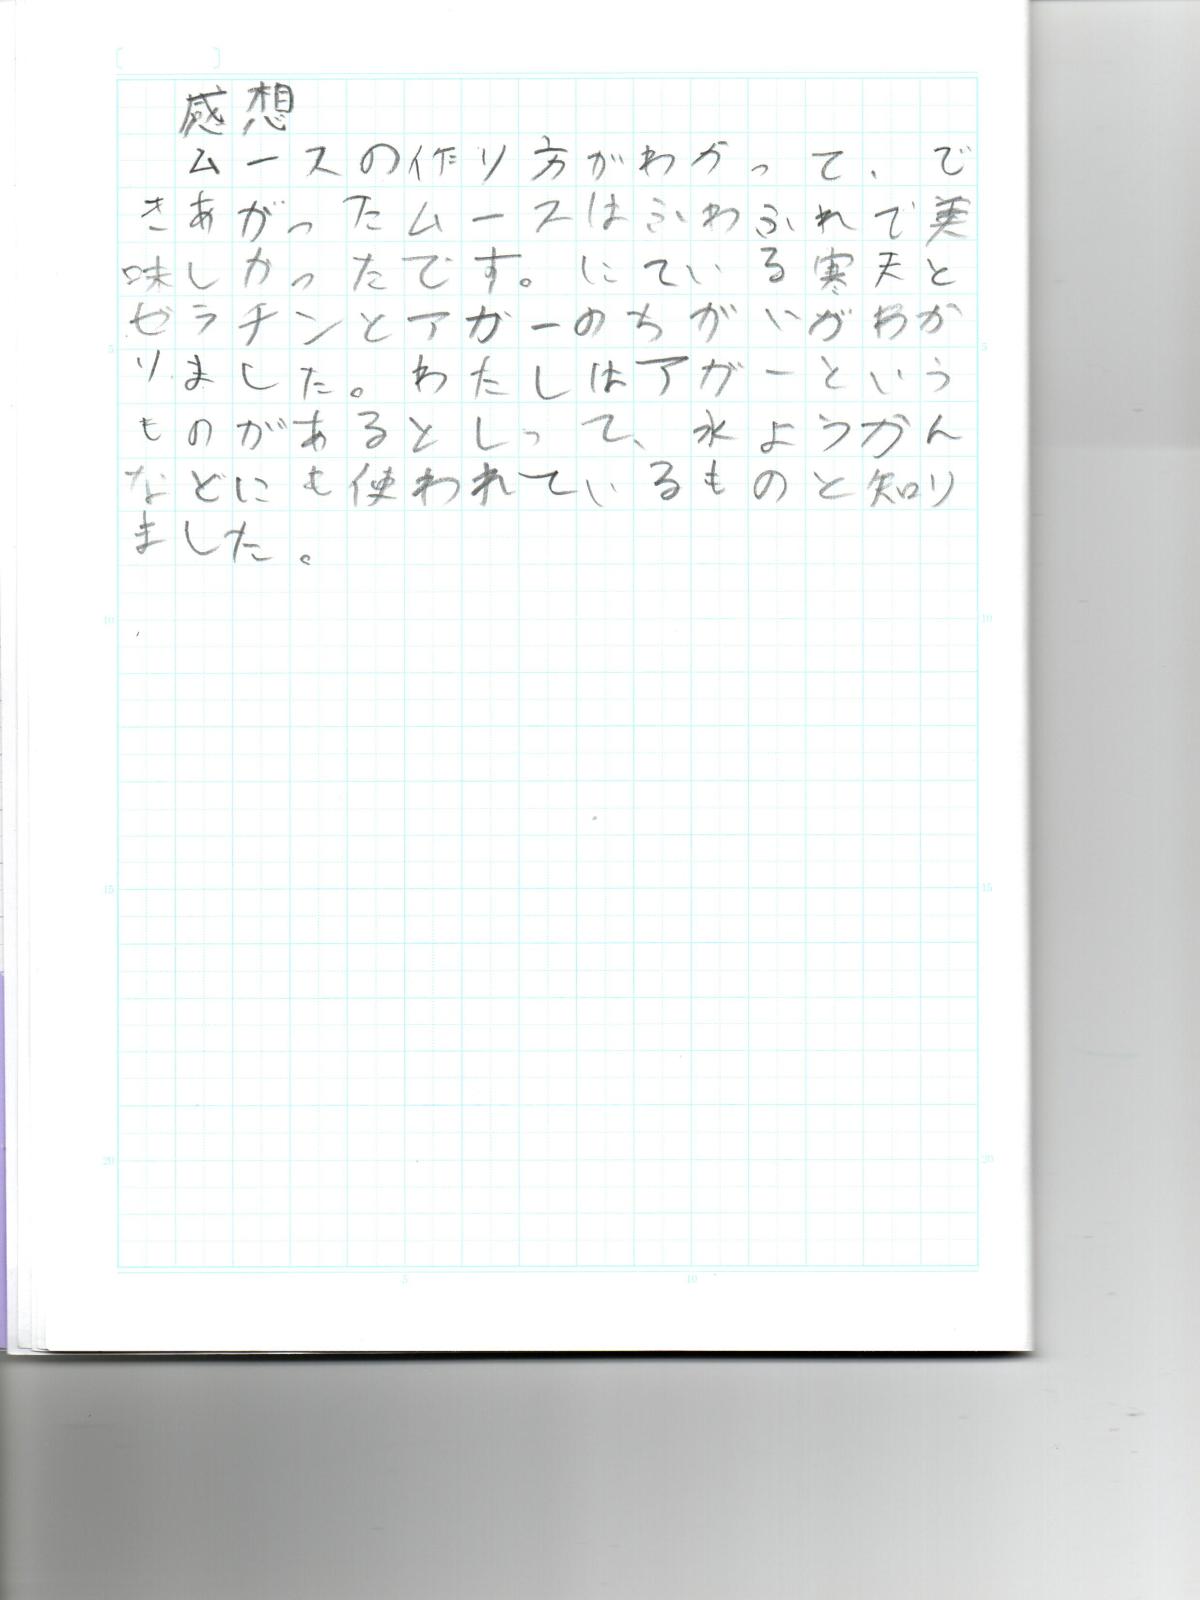 感想
ムースの作り方がわかって、で
きあがったムースはふわふれで美
味しかったです。にている寒天と
ゼラチンとアガーのちがいがわか
りました。わたしはアガーという
ものがあるとしって、水ようかん
などにも使われているものと知り
ました。
5
5
10
10
15
15
20
20
5
10